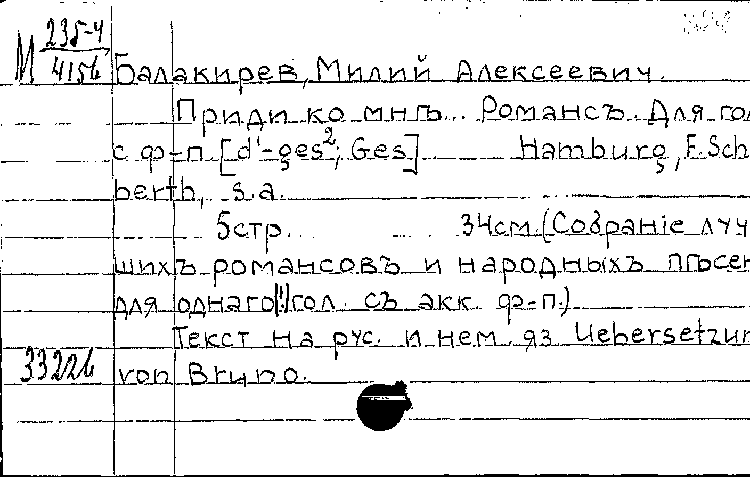 М 235-4
4156
Балакирев, Милий Алексеевич.
Приди ко мнѣ... Романсъ. Для гол
с ф-п. [d'-ges²; Ges] Hamburg, F. Sch
berth, s.a.
5стр. 34см. (Собранiе луч
шихъ романсовъ и народныхъ пѣсен
для однаго (!) гол. съ акк. ф-п.)
Текст на рус. и нем. яз Uebersetzun
von Bruno.